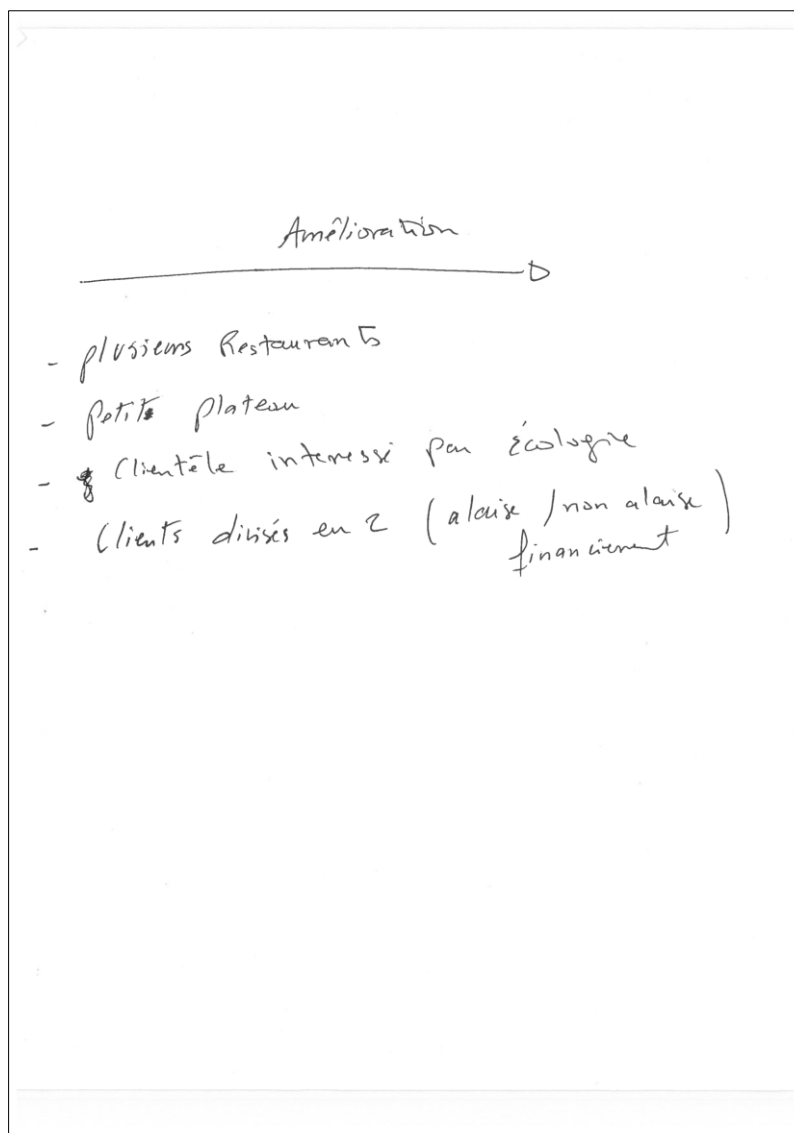 Amélioration
- plusieurs Restaurants
- Petits plateau
- Clientèle interessé par écologie
- Clients divisés en 2 (alaise / non alaise
financièrement)